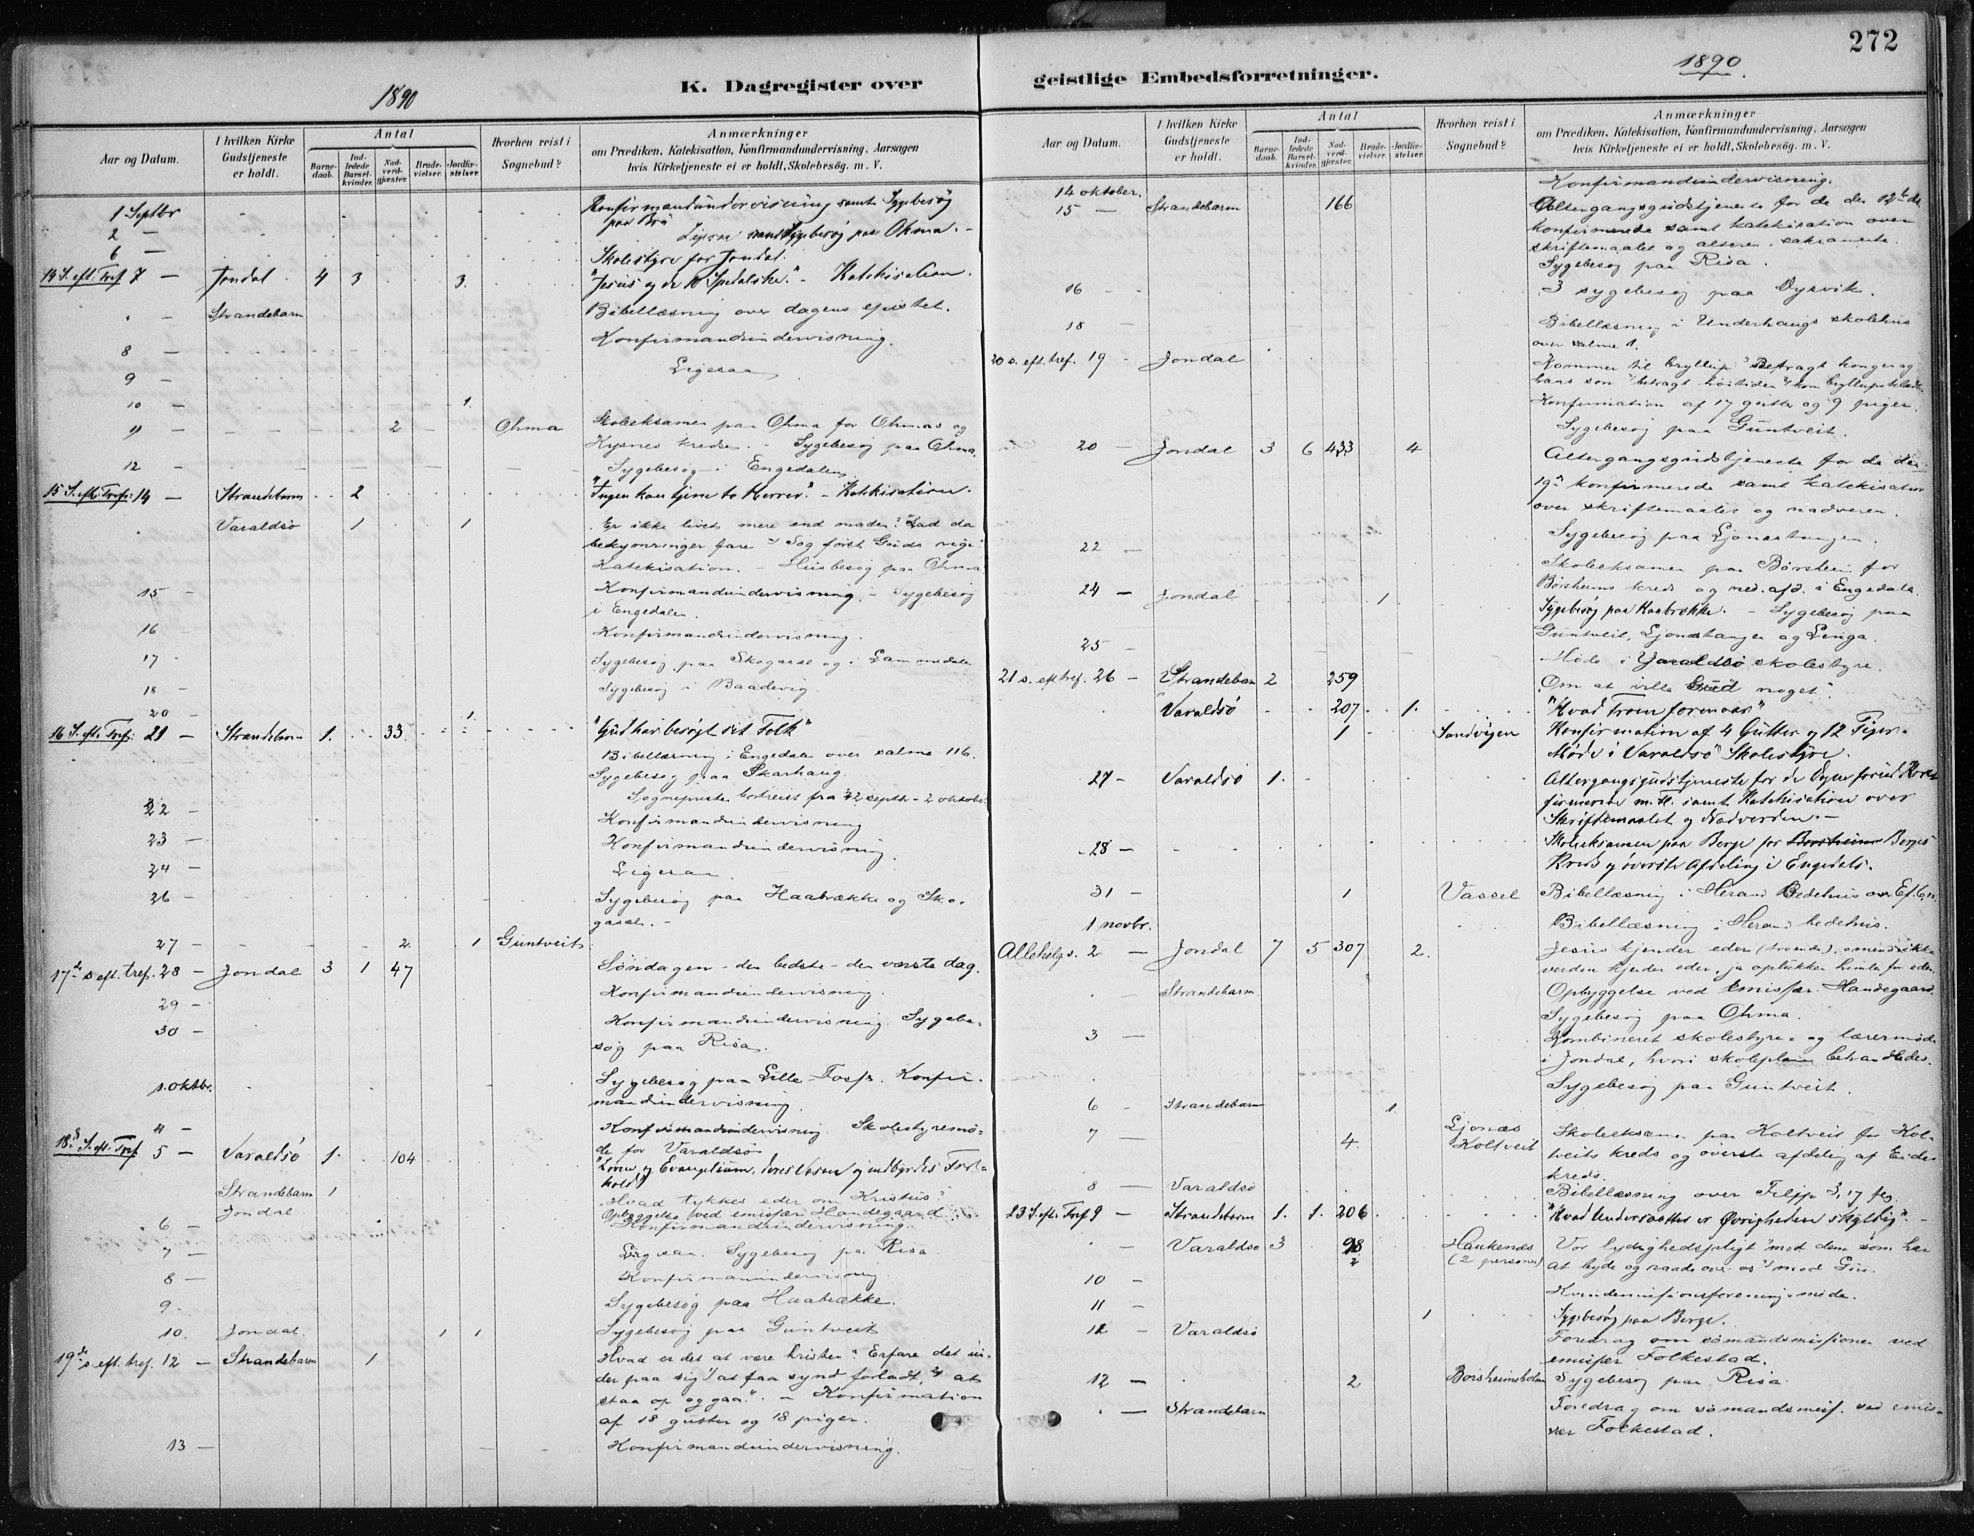 272
1890
K. Dagregister over
geistlige Embedsforretninger.
1890.
Aar og Datum.
I hvilken Kirke Gudstjeneste er holdt.
Antal
Barnedaab.
Indledede Barselkvinder.
Nadverdgjæster.
Brudevielser.
Jordfæstelser.
Hvorhen reist i Sognebud?
Anmærkninger
om Prædiken, Katekisation, Konfirmandundervisning, Aarsagen
hvis Kirketjeneste ei er holdt, Skolebesög. m. V.
1 Septbr Konfirmandundervisning samt Sygebesøg
paa Brö
2 — Ligesaa samt Sygebesøg paa Ohma. -
6 — Skolestyre for Jondal.
14 S. eft. Tref 7 — Jondal. 4 3 3. "Jesus og de 10 Spedalske." - Katekisation.
— Strandebarm Bibellæsning over dagens epistel.
8 — Konfirmandundervisning.
9 — Ligesaa
10 — 1.
11 — 2 — Ohma Skoleeksamen paa Ohma for Ohmas og
Kysnes kredse. - Sygebesøg paa Ohma.
12 — Sygebesøg i Engedalen
15 S. eft. Tref: 14 — Strandebarm 2 "Ingen kan tjene to Herrer." - Katekisation.
Varaldsö 1 1 Er ikke livet mere end maden? Lad da
bekymringer fare Søg først Guds rige
Katekisation. - Husbesøg paa Ohma
15 — Konfirmandundervisning. - Sygebesøg
i Engedalen
16 Konfirmandundervisning.
17 - Sygebesøg paa Skogasel og i Lammedalen
18 - Sygebesøg i Baadevig.
20 — 1.
16 S. eft. Tref: 21 — Strandebarm 1. 33 "Gud har besøgt sit Folk"
Bibellæsning i Engedal over salme 116.
Sygebesøg paa Skarhaug
Sognepresten bortreist fra 22 septbr - 2 oktober.
22 — Konfirmandundervisning
23 — Konfirmandundervisning.
24 — Ligesaa.
26 — Sygebesøg paa Haabrække og Sko-
gasel. -
27 - 2. 1 Guntveit
17de s eft. tref. 28 — Jondal 3 1 47 Søndagen - den bedste - den værste dag.
29 — Konfirmandundervisning.
30 — Konfirmandundervisning. Sygebe-
søg paa Risa.
1. oktbr. Sygebesøg paa Lille Fosse. Konfir-
mandundervisning.
4 — Konfirmandundervisning. Skolestyremø-
de for Varaldsö
18. S. eft. Tref 5 — Varaldsö 1. 104 "Loven og Evangelium, deres Væsen og indbyrdes For-
hold"
Strandebarm 1 Hvad tykkes eder om Kristus?
Jondal Opbyggelse ved emissær Handegaard
6 — Konfirmandundervisning.
7 — Ligesaa. Sygebesøg paa Risa.
8 — Konfirmandundervisning
9. Sygebesøg paa Haabrække.
10. Jondal. 1 1 Sygebesøg paa Guntveit
19de s eft. tref. 12 — Strandebarm 1 Hvad er det at være kristen? Erfare det un-
der paa sig at faa synd forladt, at
staa op og gaa". - Konfirmation
af 18 gutter og 18 piger.
13 — Konfirmandundervisning.
Aar og Datum.
I hvilken Kirke Gudstjeneste er holdt.
Antal
Barnedaab.
Indledede Barselkvinder.
Nadverdgjæster.
Brudevielser.
Jordfæstelser.
Hvorhen reist i Sognebud?
Anmærkninger
om Prædiken, Katekisation, Konfirmandundervisning, Aarsagen
hvis Kirketjeneste ei er holdt, Skolebesög. m. V.
14 oktober. Konfirmandundervisning.
15 — Strandebarm 166 Altergangsgudstjeneste for de den 12te de
konfirmerede samt katekisation over
skriftemaalet og alterens sakramente.
Sygebesøg paa Risa.
16 — 3 sygebesøg paa Øysvik.
18 — Bibellæsning i Underhaugs skolehus
over salme 1.
20 s. eft. tref. 19 - Jondal Kommer til bryllup! Betragt kongen og
hans søn betragt høitiden kom bryllupsklædte
Konfirmation af 17 gutter og 9 piger.
Sygebesøg paa Guntveit.
20 — Jondal 3 6 433 4 Altergangsgudstjeneste for de den
19de konfirmerede samt katekisation
over skriftemaalet og nadveren.
22 — Sygebesøg paa Ljonestangen.
Skoleeksamen paa Børsheim for
24 — Jondal 1. Børsheims kreds og ned. afd. i Engedale.
Sygebesøg paa Haabrække. - Sygebesøg paa
25 — Guntveit, Ljonestangen og Linga.
Møde i Varaldsö skolestyre.
21 s. eft tref. 26 — Strandebarm 2 259 Om at ville Gud noget".
Varaldsö 207 1. "Hvad Troen formaar"
1 Sandvigen Konfirmation af 4 Gutter og 12 Piger.
Møde i Varaldsö Skolestyre.
27 - Varaldsö 1. Altergangsgudstjeneste for de Dagen forud Kon-
firmerede m. fl. samt Katekisation over
Skriftemaalet og Nadverden. -
28 — Skoleeksamen paa Berge for Børsheim Berges
Kreds og øverste Afdeling i Engedals.
31 — 1 Vassel Bibellæsning i Herand Bedehus over Ef.
1 novbr. Bibellæsning i Herand bedehus.
Allehelgs. 2 — Jondal 7 5 307 2. Jesus kjender eder
verden kjender eder, ja oplukker himle for eder.
— Strandebarm Opbyggelse ved Emissær Handegaard.
Sygebesøg paa Ohma.
3 — Kombineret skolestyre- og lærermøde
i Jondal, hvori skoleplanen behandledes.
Sygebesøg paa Guntveit.
6 — Strandebarm 1.
7 — 4. Ljonæs
Koltveit Skoleeksamen paa Koltveit for Kol-
tveits kreds og øverste afdeling af Eides
kreds.
8 — Varaldsö Bibellæsning over Filipp 3, 17 flg
23 S. eft. Tref 9 — Strandebarm 1. 1. 206 "Hvad Undersaatter er Øvrigheden skyldig" -
— Varaldsö 3 98
2 Haukenæs
(2 personer) Vor lydighedspligt mod dem som har
at byde og raade over os mod Gud.
10 — Kvindemissionsforenings møde.
11 — 1 Sygebesøg paa Berge.
12 — Varaldsö Foredrag om sømandsmissionen ved
emissær Folkestad.
12 — 2 Børsheimsholmen Sygebesøg paa Risa
— Strandebarm Foredrag om sömandsmiss. ved emis-
sær Folkestad.